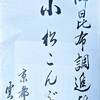 御昆布調進所
小松こんぶ
京都
雲